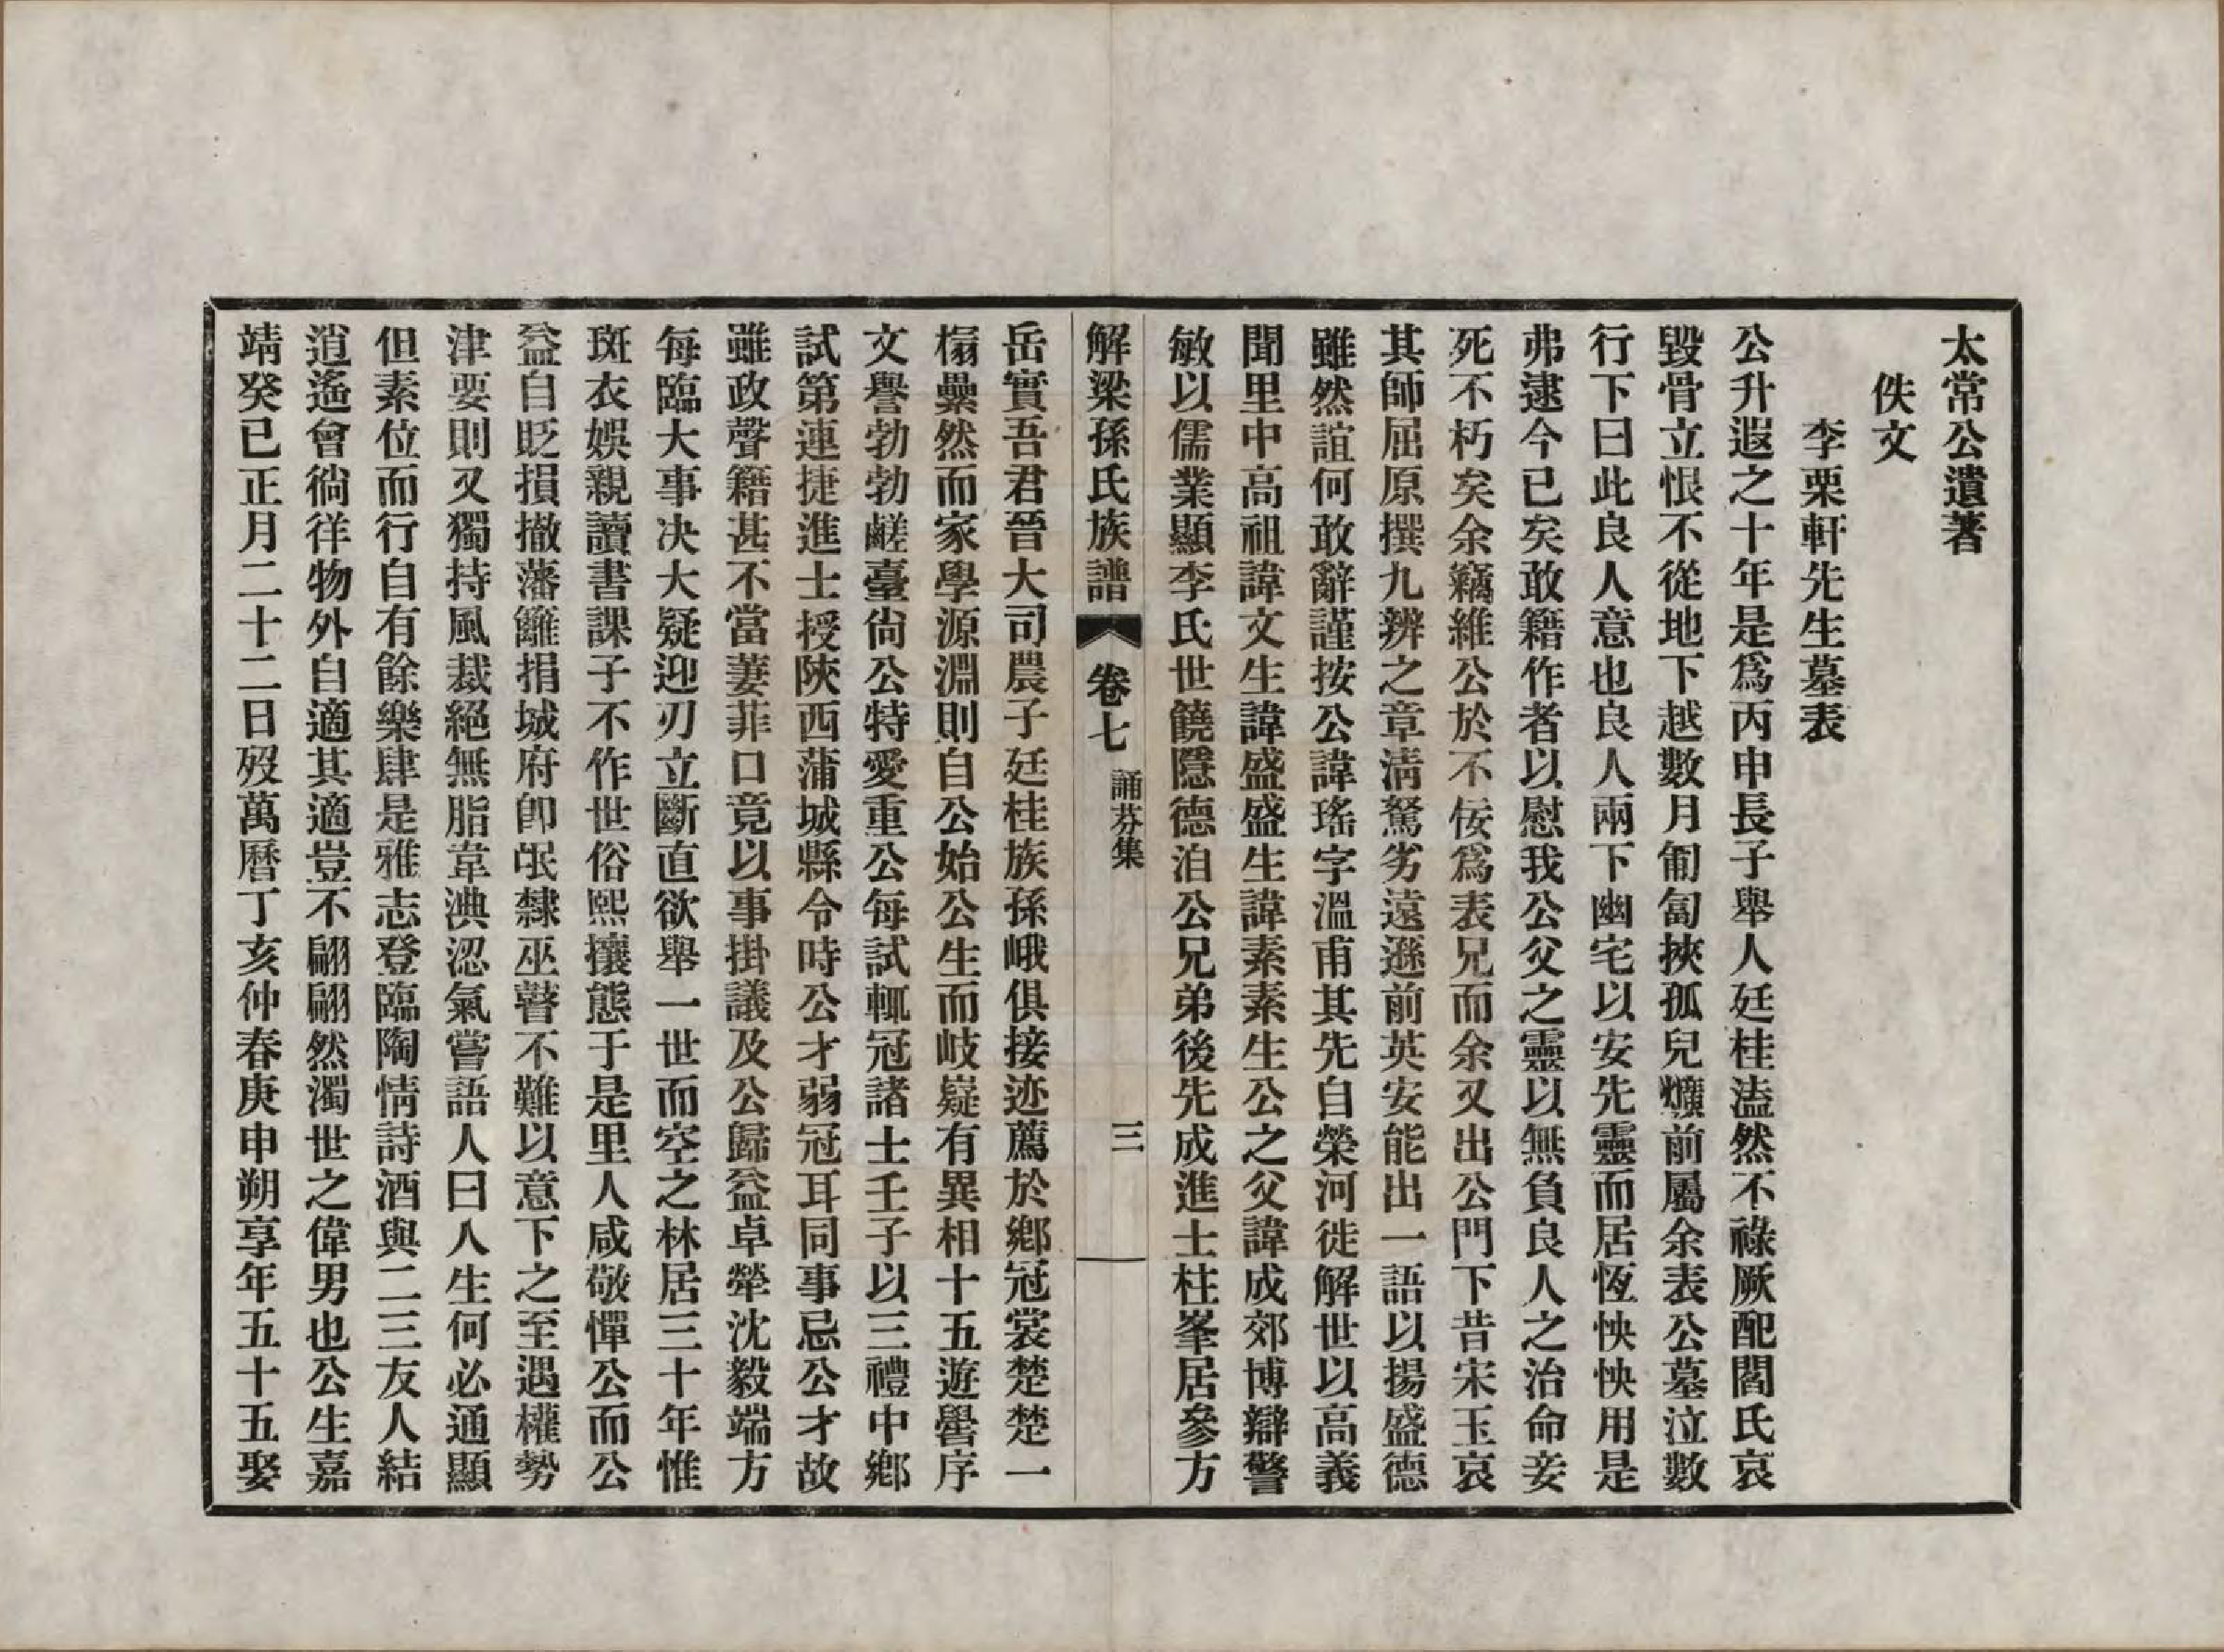 太常公遺著
佚文
李栗軒先生墓表
公升遐之十年是爲丙申長子舉人廷桂溘然不祿厥配閻氏哀
毀骨立恨不從地下越數月匍匐挾孤兒爌前屬余表公墓泣數
行下曰此良人意也良人兩下幽宅以安先靈而居恆怏怏用是
弗逮今已矣敢籍作者以慰我公父之靈以無負良人之治命妾
死不朽矣余竊維公於不佞爲表兄而余又出公門下昔宋玉哀
其師屈原撰九辨之章淸駑劣遠遜前英安能出一語以揚盛德
雖然誼何敢辭謹按公諱瑤字溫甫其先自榮河徙解世以高義
聞里中高祖諱文生諱盛盛生諱素素生公之父諱成郊博辯警
敏以儒業顯李氏世饒隱德洎公兄弟後先成進士柱峯居參方
解梁孫氏族譜 卷七 誦芬集 三
岳實吾君晉大司農子廷桂族孫峨俱接迹薦於鄕冠裳楚楚一
榻纍然而家學源淵則自公始公生而岐嶷有異相十五遊黌序
文譽勃勃鹺臺尙公特愛重公每試輒冠諸士壬子以三禮中鄕
試第連捷進士授陝西蒲城縣令時公才弱冠耳同事忌公才故
雖政聲籍甚不當萋菲口竟以事掛議及公歸益卓犖沈毅端方
每臨大事決大疑迎刃立斷直欲舉一世而空之林居三十年惟
斑衣娛親讀書課子不作世俗熙攘態于是里人咸敬憚公而公
益自貶損撤藩籬捐城府卽氓隸巫瞽不難以意下之至遇權勢
津要則又獨持風裁絕無脂韋淟涊氣嘗語人曰人生何必通顯
但素位而行自有餘樂肆是雅志登臨陶情詩酒與二三友人結
逍遙會徜徉物外自適其適豈不翩翩然濁世之偉男也公生嘉
靖癸巳正月二十二日歿萬曆丁亥仲春庚申朔享年五十五娶